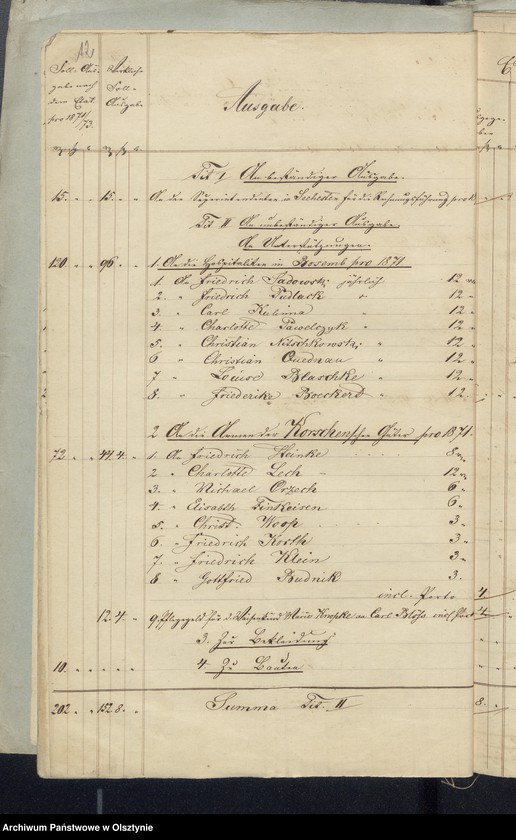 12
Soll-Aus-
gabe nach
dem Etat
pro 1871/73.
Wirkliche
Soll-
Ausgabe
Ausgabe.
Tit I An beständiger Ausgabe.
15. 15. An den Superintendenten in für die Rechnungsführung pro
Tit II An unbeständiger Ausgabe
An Unterstützungen
120 96 1. An die Hospitaliten in Rosemb pro 1871
1. An Friedrich Sadowski jährlich 12
2. " Friedrich Pudlack " 12 "
3. " Carl " 12 "
4. " Charlotte Pawelczyk " 12 "
5. " Christian Nitschkowski " 12 "
6 " Christian Quednau " 12 "
7 " Louise Blaschke " 12 "
8. " Friederike Boeckerd " 12
2 An die Armen der Korschenschen Güter pro 1871.
72. 44.4. 1. An Friedrich Heinke 8
2 " Charlotte Lech 12
3. " Michael Orzech 6
4. " Elisabth Finkeisen 6
5. " Christ. Woop 3
6. " Friedrich Korth 3
7. " Friedrich Klein 3
8 " Gottfried Budnik 3.
incl. Porto 4
12.4. 9. Pflegegeld für d. Waisenkind Marie an Carl incl. Porto 4
3. Zur Bekleidung
10. 4. Zu Bauten
202. 152.8. Summa Tit. II 8.
Archiwum Państwowe w Olsztynie